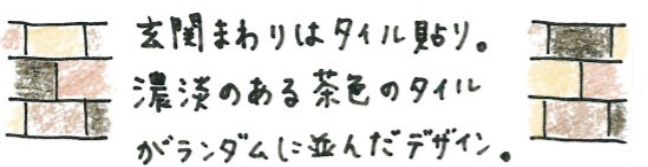 玄関まわりはタイル貼り。
濃淡のある茶色のタイル
がランダムに並んだデザイン。